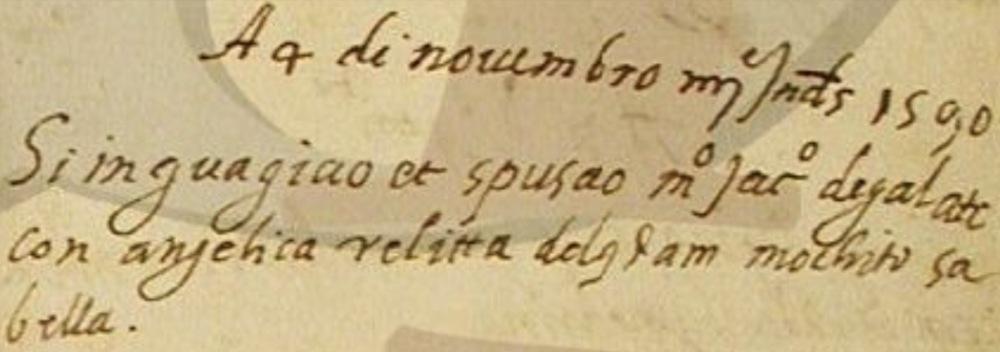 A 4 di novembro iiij Jnds 1590
Si inguagiao et spusao mo Jaco degalate
con angelica relitta del qdam mochito sa
bella.